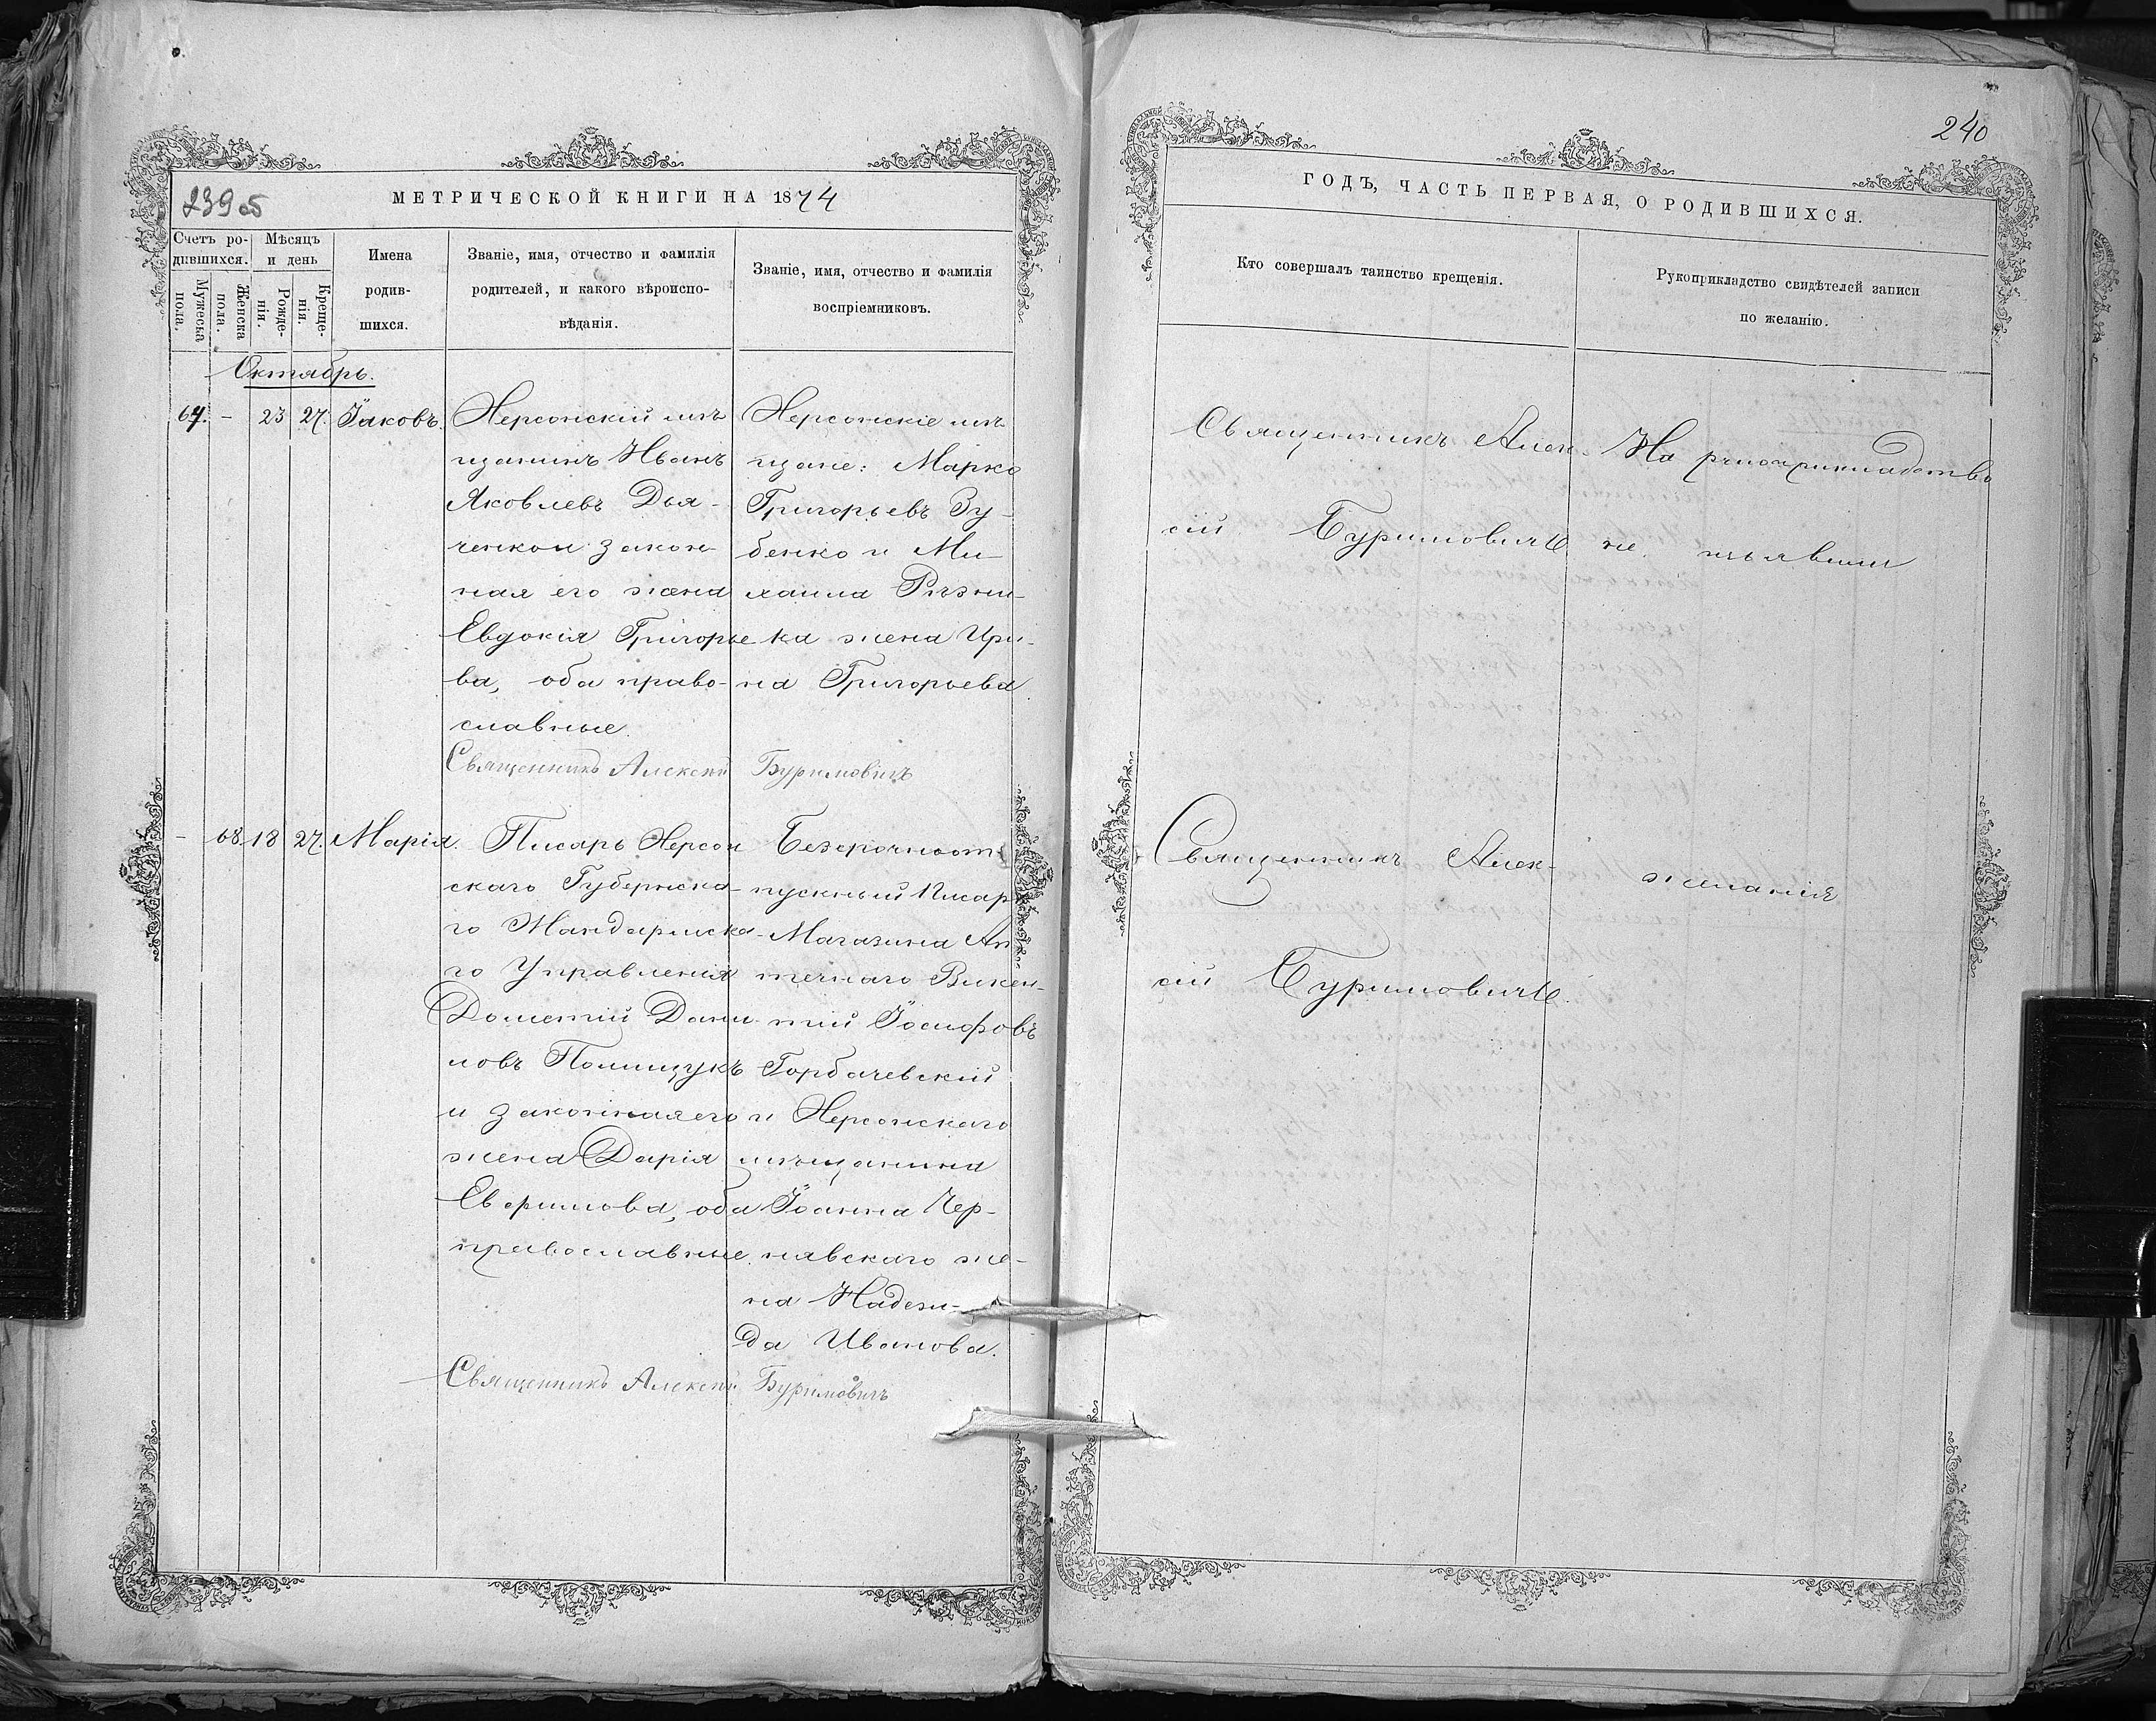 239об
МЕТРИЧЕСКОЙ КНИГИ НА 1874
Счетъ ро-
дившихся.
Мужеска
пола.
Женска
пола.
Мѣсяцъ
и день
Рожде-
нія.
Креще-
нія.
Имена
родив-
шихся.
Званіе, имя, отчество и фамилія
родителей, и какого вѣроиспо-
вѣданія.
Званіе, имя, отчество и фамилія
воспріемниковъ.
Октябрь.
67. - 23 27. Іаковъ.
Херсонскій мѣ
щанинъ Иванъ
Яковлевъ Дья-
ченко и закон-
ная его жена
Евдокія Григорье
ва, оба право-
славные.
Херсонскіе мѣ-
щане: Марко
Григорьевъ Зу-
бенко и Ми-
хаила Рѣзни-
ка жена Ири-
на Григорьева
Священникъ Алексій Буримовичъ
- 68. 18 27. Марія.
Писарь Херсон
скаго Губернска-
го Жандармска-
го Управленія
Дометій Дани-
ловъ Полищукъ
и законная его
жена Дарія
Евфимова, оба
православные.
Безсрочноот-
пускный Писарь
Магазина Ап
течнаго Викен-
тій Іосифовъ
Горбачевскій
и Херсонскаго
мѣщанина
Іоанна Чер-
нявскаго же-
на Надеж-
да Иванова.
Священникъ Алексій Буримовичъ
240
ГОДЪ, ЧАСТЬ ПЕРВАЯ, О РОДИВШИХСЯ.
Кто совершалъ таинство крещенія.
Рукоприкладство свидѣтелей записи
по желанію.
Священникъ Алек-
сій Буримовичъ.
На рукоприкладство
не изъявили
Священникъ Алек-
сій Буримовичъ.
желанія